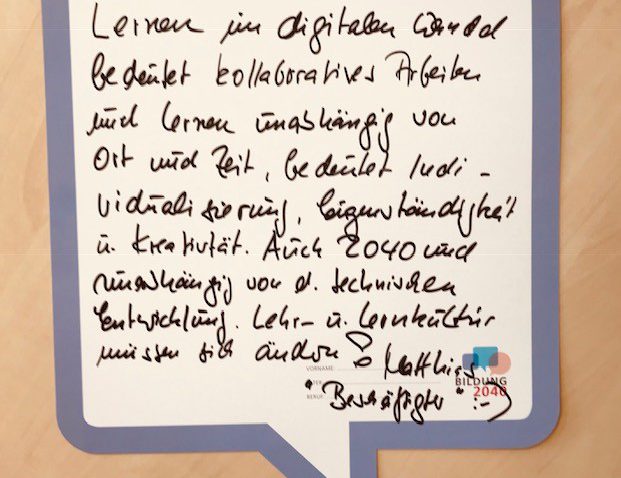 Lernen im digitalen Wandel
bedeutet kollaboratives Arbeiten
und Lernen unabhängig von
Ort und Zeit, bedeutet Indi-
vidualisierung, Eigenständigkeit
u. Kreativität. Auch 2040 und
unabhängig von d. technischen
Entwicklung. Lehr- u. Lernkultur
müssen sich ändern!
VORNAME Matthias
BERUF "Beschäftigter" :-)
BILDUNG
2040